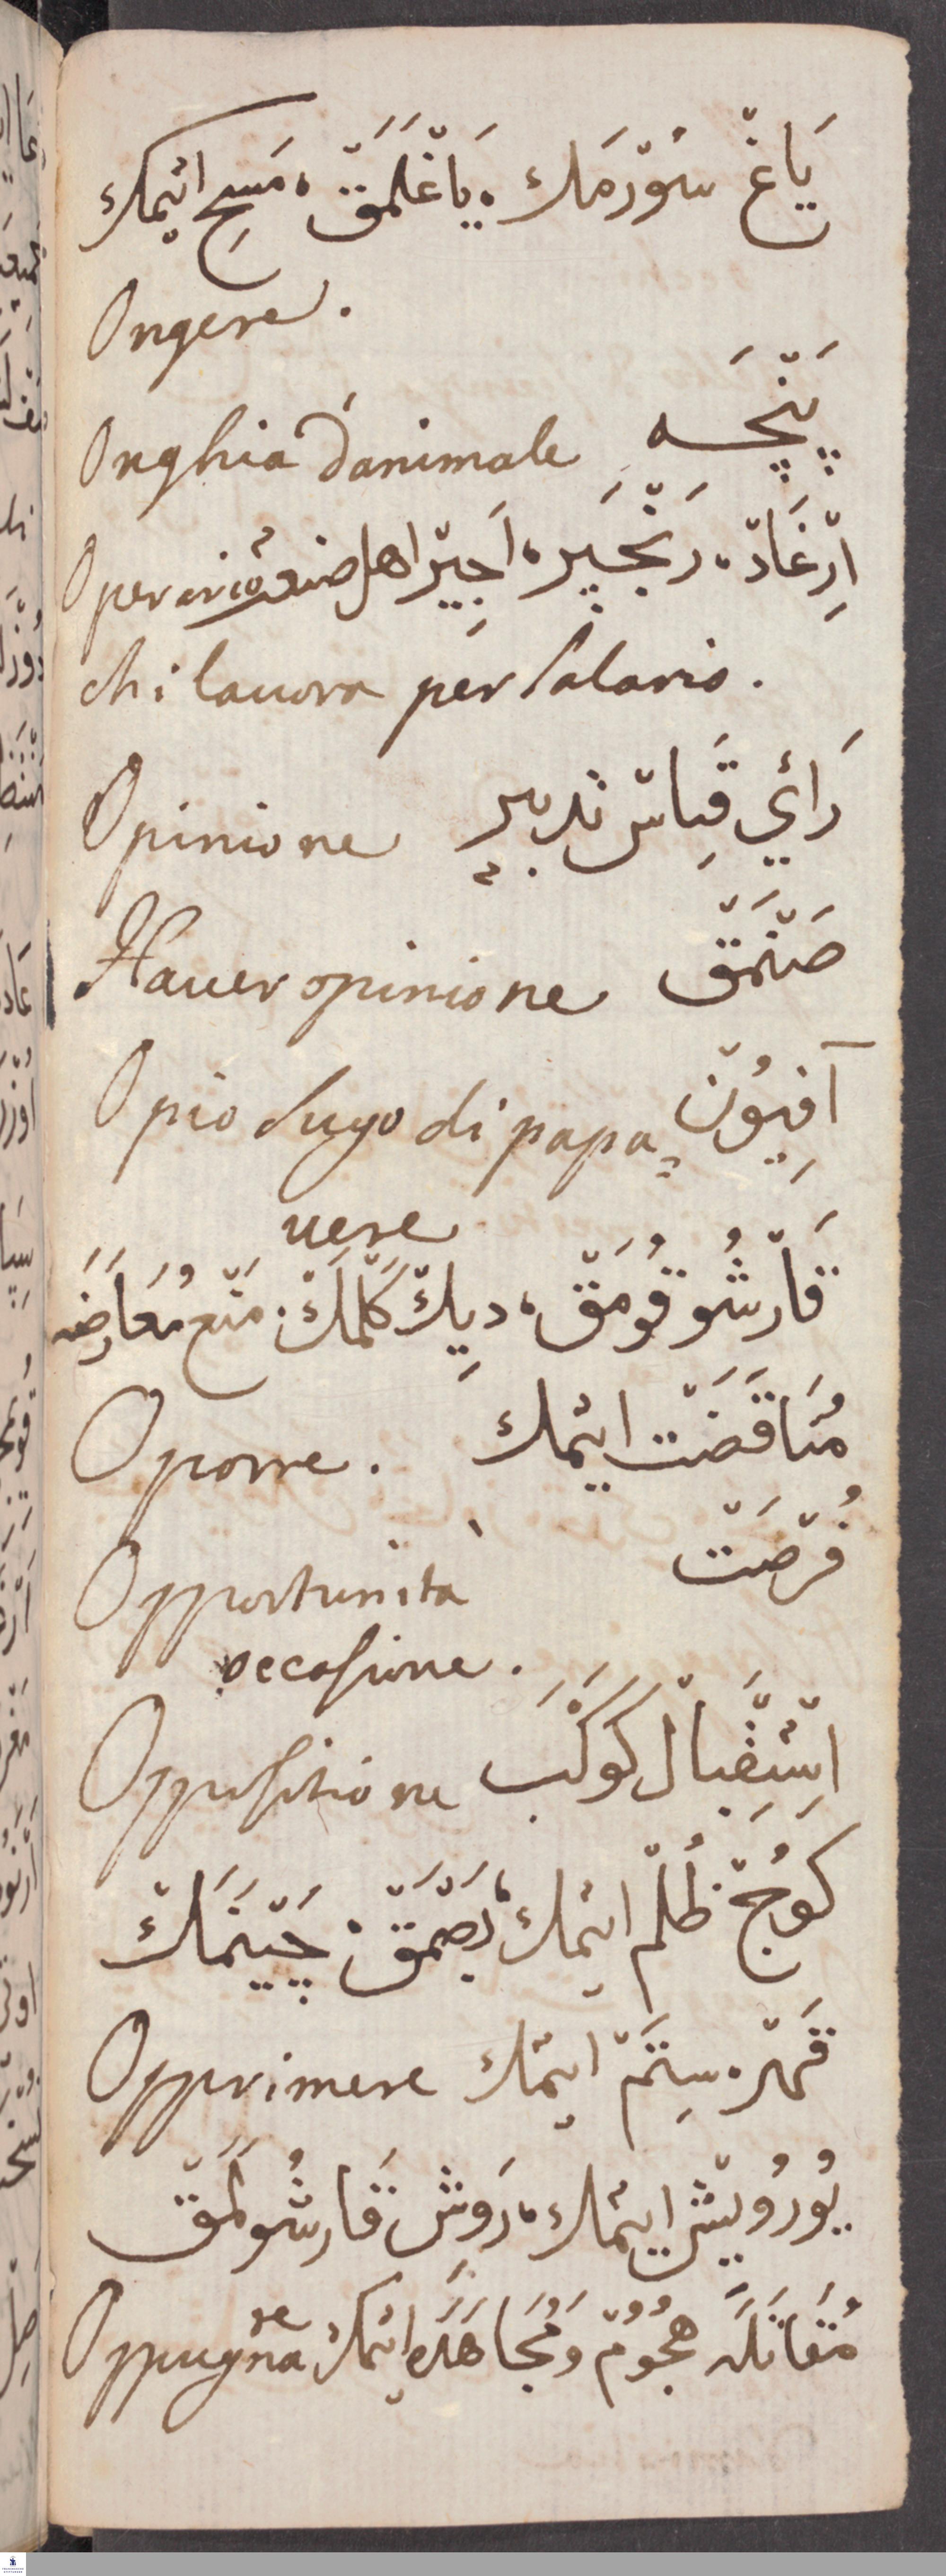 يَاغْ سُوْرمَك ، يَاغْلَمَقْ ، مَسِح ايتْمك
Ongere.
Onghia d'animale پَنْچَه
Operario اِرْغَادْ ، رَنْجْپَر ، اَجِيرْ اهل صنعت
chi lauora per salario.
Opinione رَائِي قِيَاسْ تدبير
Hauer opinione صَنْمَقْ
Opio sugo di papa= آفِيُونْ
uere
قَارْشُو قُومَقْ ، دِيكْ كَلْمَكْ . مَنْع مُعَارَضَه
Oporre. مُنَاقَضَتْ ايتْمك
Opportunità فُرْصَتْ
occasione.
Oppositione اِسْتِقْبَالْ كَوْكَب
كُوجْ ظُلْم ايتمك ، بَصْمَقْ ، چَيْنَمَكْ
Opprimere قَهْر ، سِتَمْ ايتمْك
يُورُويشْ ايتْمك ، رَوِشْ قَارشُولَمَقْ
Oppugnare مُقَاتَلَه هُجُومْ وَمُجَاهَدَه ايتمكْ